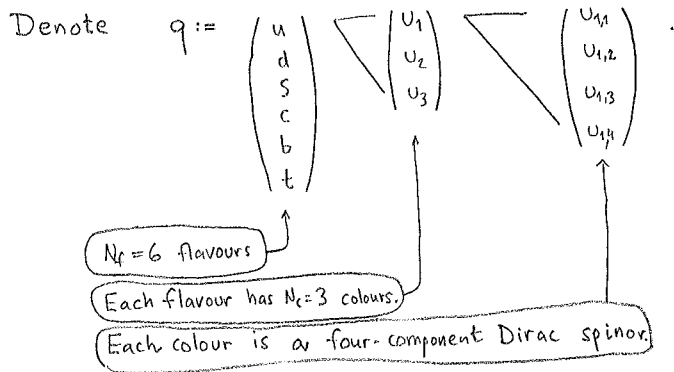 Denote q := ( u d s c b t ) ( u₁ u₂ u₃ ) ( u₁,₁ u₁,₂ u₁,₃ u₁,₄ ) .
N_f = 6 flavours
Each flavour has N_c = 3 colours.
Each colour is a four-component Dirac spinor.